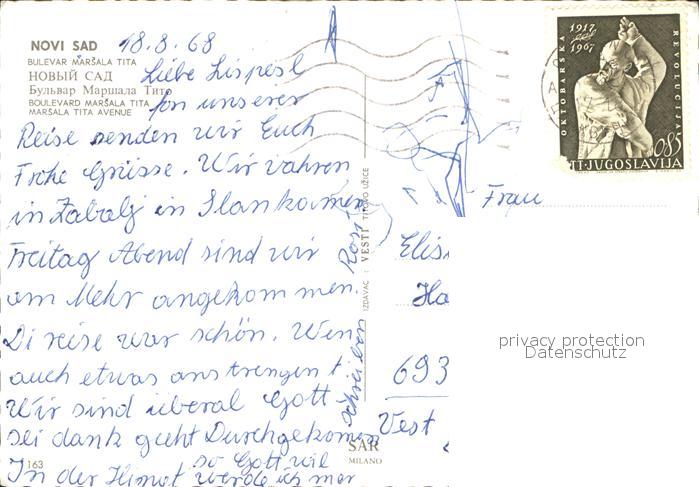 NOVI SAD 18.8.68
BULEVAR MARŠALA TITA
НОВЫЙ САД
Бульвар Маршала Тито
BOULEVARD MARŠALA TITA
MARŠALA TITA AVENUE
Liebe
fon unserer
Reise senden wir Euch
Frohe Grüsse. Wir vahren
in Zabalj in Slankamen
Freitag Abend sind wir
am Mehr angekommen.
Di reise war schön. Wen
auch etwas anstrengent
Wir sind überal Gott
sei dank guht Durchgekomen
In der Himat so Gott wil
werde ich mer
schreiben
Rosi
163
IZDAVAČ: VESTI TITOVO UŽICE
SAR
MILANO
OKTOBARSKA
1917
1967
REVOLUCIJA
0.85
PTT JUGOSLAVIJA
Frau
Elis
Ha
693
Vest
privacy protection
Datenschutz